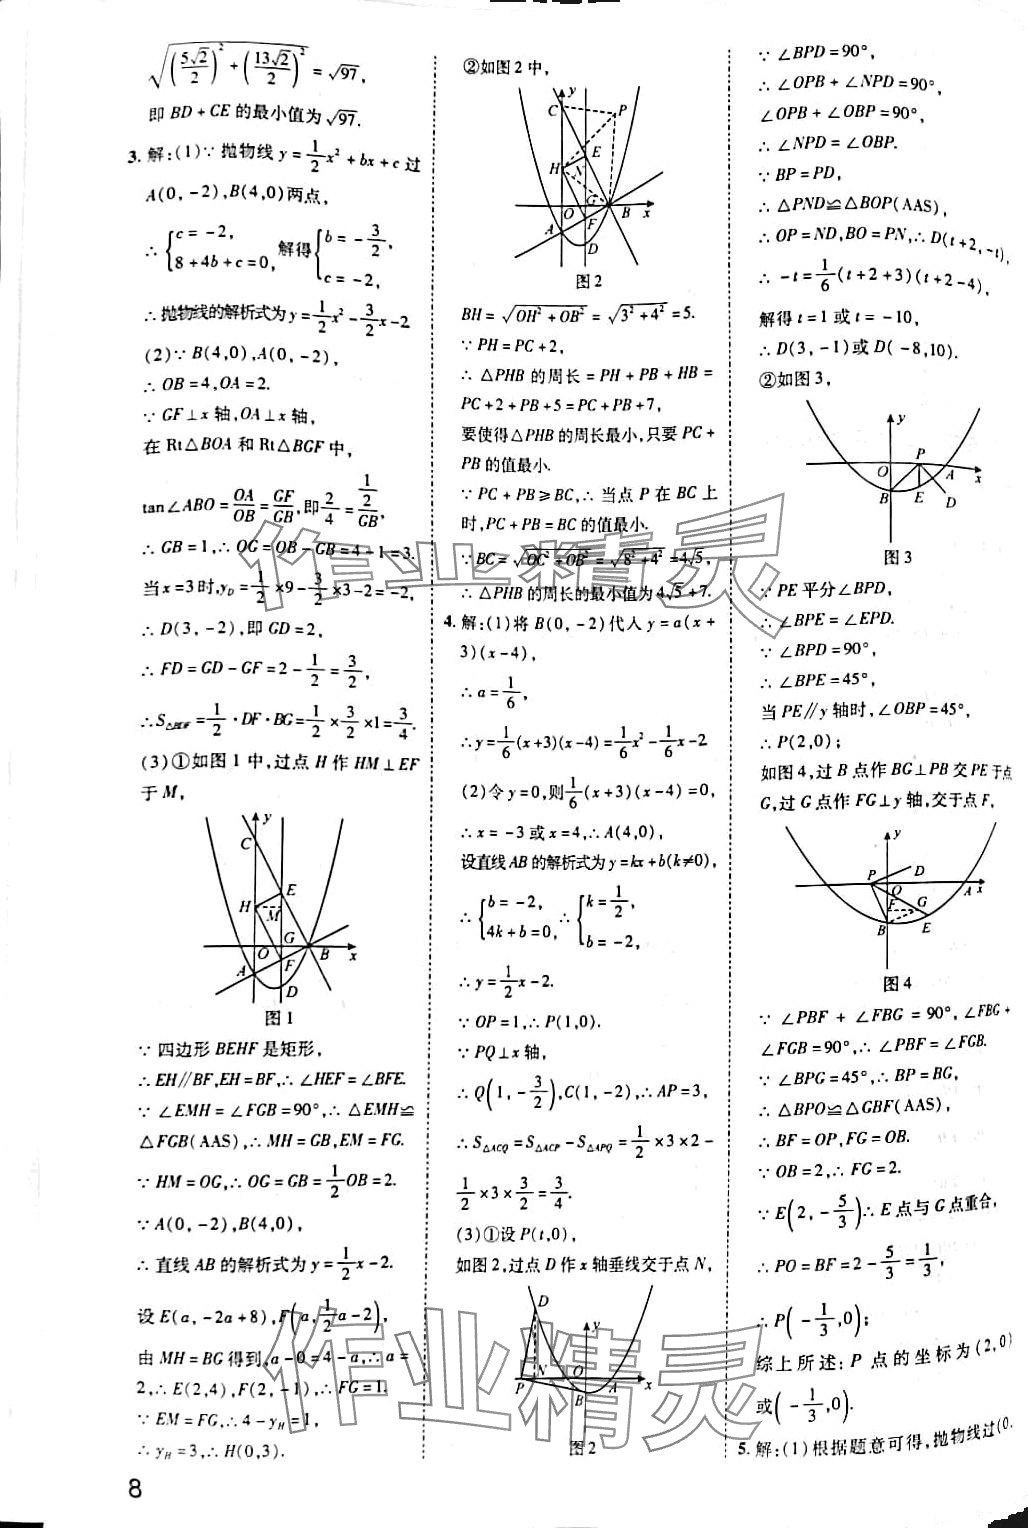 √((5√2/2)²+(13√2/2)²)=√97,
即BD+CE的最小值为√97.
3. 解:(1)∵抛物线y=1/2x²+bx+c过
A(0,-2),B(4,0)两点,
∴{c=-2, 8+4b+c=0, 解得{b=-3/2, c=-2,
∴抛物线的解析式为y=1/2x²-3/2x-2
(2)∵B(4,0),A(0,-2),
∴OB=4,OA=2.
∵GF⊥x轴,OA⊥x轴,
在Rt△BOA和Rt△BGF中,
tan∠ABO=OA/OB=GF/GB,即2/4=(1/2)/GB,
∴GB=1,∴OG=OB-GB=4-1=3.
当x=3时,y_D=1/2×9-3/2×3-2=-2,
∴D(3,-2),即GD=2,
∴FD=GD-GF=2-1/2=3/2,
∴S△BDF=1/2·DF·BG=1/2×3/2×1=3/4.
(3)①如图1中,过点H作HM⊥EF
于M,
y
C
E
H
M
G
O
B
x
A
F
D
图1
∵四边形BEHF是矩形,
∴EH∥BF,EH=BF,∴∠HEF=∠BFE.
∵∠EMH=∠FGB=90°,∴△EMH≌
△FGB(AAS),∴MH=GB,EM=FG.
∵HM=OG,∴OG=GB=1/2OB=2.
∵A(0,-2),B(4,0),
∴直线AB的解析式为y=1/2x-2.
设E(a,-2a+8),F(a,1/2a-2),
由MH=BG得到,a-0=4-a,∴a=
2,∴E(2,4),F(2,-1),∴FG=1.
∵EM=FG,∴4-y_H=1,
∴y_H=3,∴H(0,3).
8
②如图2中,
y
C
P
E
H
N
G
O
B
x
A
F
D
图2
BH=√(OH²+OB²)=√(3²+4²)=5.
∵PH=PC+2,
∴△PHB的周长=PH+PB+HB=
PC+2+PB+5=PC+PB+7,
要使得△PHB的周长最小,只要PC+
PB的值最小.
∵PC+PB≥BC,∴当点P在BC上
时,PC+PB=BC的值最小.
∵BC=√(OC²+OB²)=√(8²+4²)=4√5,
∴△PHB的周长的最小值为4√5+7.
4. 解:(1)将B(0,-2)代入y=a(x+
3)(x-4),
∴a=1/6,
∴y=1/6(x+3)(x-4)=1/6x²-1/6x-2
(2)令y=0,则1/6(x+3)(x-4)=0,
∴x=-3或x=4,∴A(4,0),
设直线AB的解析式为y=kx+b(k≠0),
∴{b=-2, 4k+b=0, ∴{k=1/2, b=-2,
∴y=1/2x-2.
∵OP=1,∴P(1,0).
∵PQ⊥x轴,
∴Q(1,-3/2),C(1,-2),∴AP=3,
∴S△ACQ=S△ACP-S△APQ=1/2×3×2-
1/2×3×3/2=3/4.
(3)①设P(t,0),
如图2,过点D作x轴垂线交于点N,
D
y
N
O
P
B
A
x
图2
∵∠BPD=90°,
∴∠OPB+∠NPD=90°,
∠OPB+∠OBP=90°,
∴∠NPD=∠OBP.
∵BP=PD,
∴△PND≌△BOP(AAS),
∴OP=ND,BO=PN,∴D(t+2,-t),
∴-t=1/6(t+2+3)(t+2-4),
解得t=1或t=-10,
∴D(3,-1)或D(-8,10).
②如图3,
y
O
P
A
x
B
E
D
图3
∵PE平分∠BPD,
∴∠BPE=∠EPD.
∵∠BPD=90°,
∴∠BPE=45°,
当PE∥y轴时,∠OBP=45°,
∴P(2,0);
如图4,过B点作BG⊥PB交PE于点
G,过G点作FG⊥y轴,交于点F,
y
P
D
O
A
x
F
G
B
E
图4
∵∠PBF+∠FBG=90°,∠FBG+
∠FGB=90°,∴∠PBF=∠FGB.
∵∠BPG=45°,∴BP=BG,
∴△BPO≌△GBF(AAS),
∴BF=OP,FG=OB.
∵OB=2,∴FG=2.
∵E(2,-5/3)∴E点与G点重合,
∴PO=BF=2-5/3=1/3,
∴P(-1/3,0);
综上所述:P点的坐标为(2,0)
或(-1/3,0).
5. 解:(1)根据题意可得,抛物线过(0,
作业精灵
作业精灵